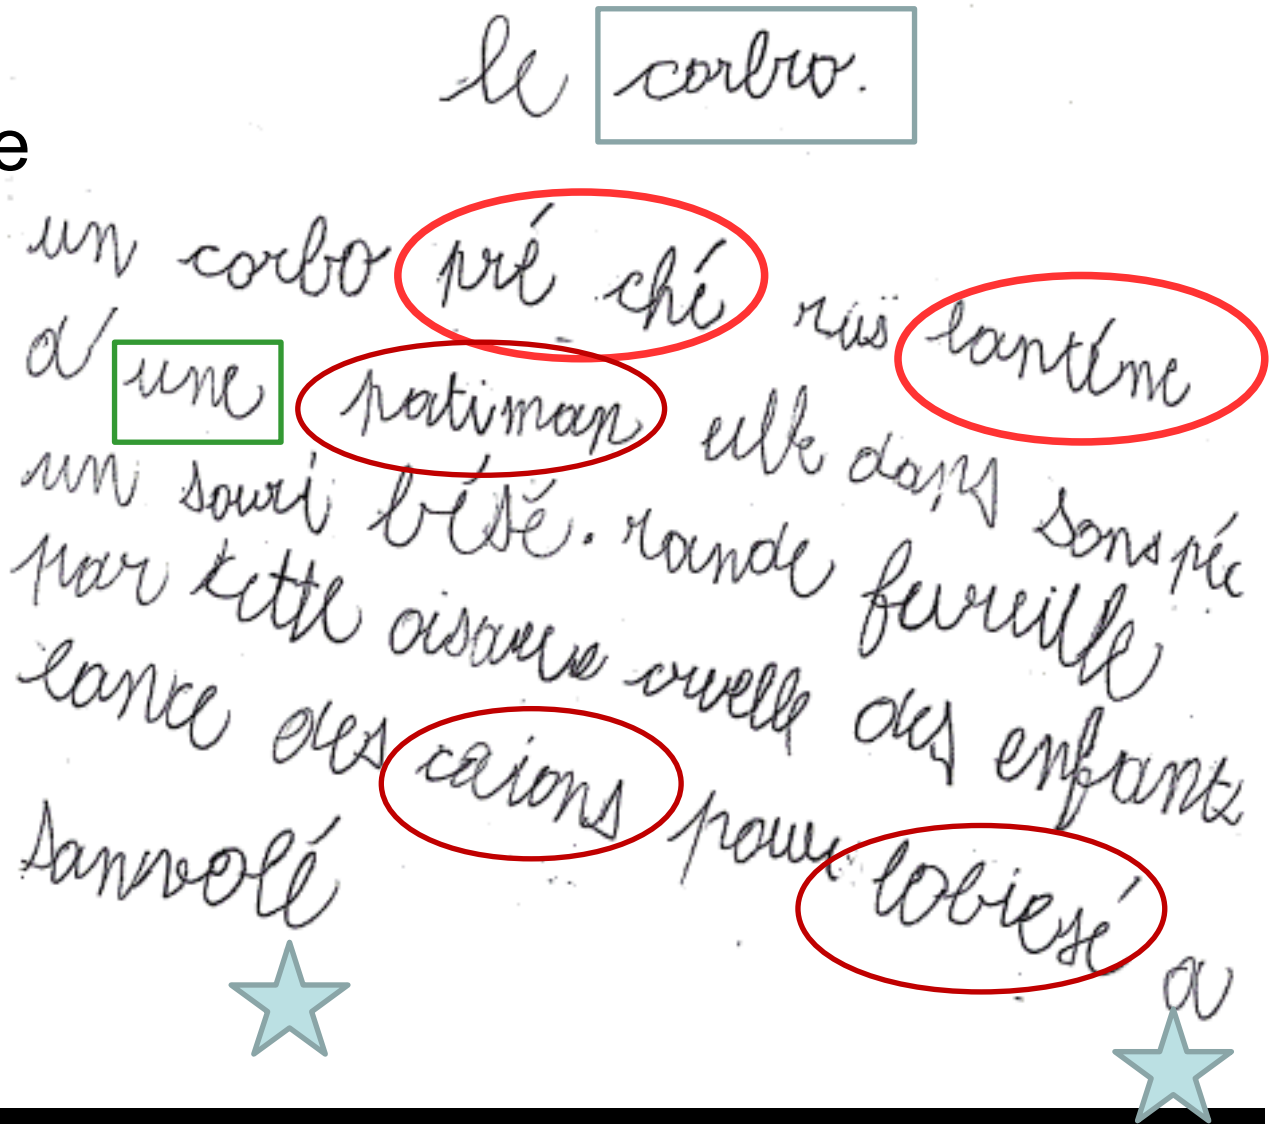 le corbro.
e
un corbo pré ché rüs lanténe
d' une patiman ulle dans sonspée
un souri bésé. rande feureille
par kette oisaues cruelle des enfants
lance des caions pour lobiesé a
sanvolé